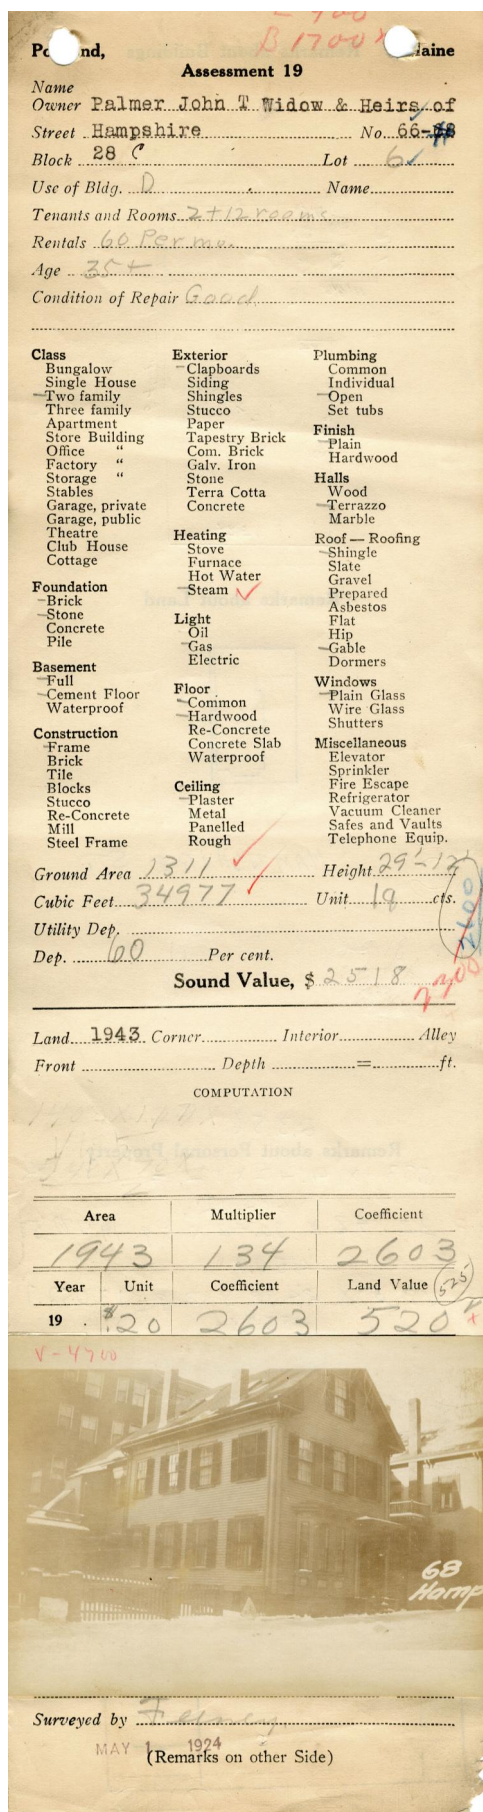 B 1700 x
Maine
Assessment 19
Name
Owner Palmer John T Widow & Heirs of
Street Hampshire No. 66-
Block 28 C Lot 6
Use of Bldg. D Name
Tenants and Rooms 2+12 rooms
Rentals 60 Per mo.
Age 35+
Condition of Repair Good
Class
Bungalow
Single House
Two family
Three family
Apartment
Store Building
Office "
Factory "
Storage "
Stables
Garage, private
Garage, public
Theatre
Club House
Cottage
Foundation
Brick
Stone
Concrete
Pile
Basement
Full
Cement Floor
Waterproof
Construction
Frame
Brick
Tile
Blocks
Stucco
Re-Concrete
Mill
Steel Frame
Exterior
Clapboards
Siding
Shingles
Stucco
Paper
Tapestry Brick
Com. Brick
Galv. Iron
Stone
Terra Cotta
Concrete
Heating
Stove
Furnace
Hot Water
Steam
Light
Oil
Gas
Electric
Floor
Common
Hardwood
Re-Concrete
Concrete Slab
Waterproof
Ceiling
Plaster
Metal
Panelled
Rough
Plumbing
Common
Individual
Open
Set tubs
Finish
Plain
Hardwood
Halls
Wood
Terrazzo
Marble
Roof — Roofing
Shingle
Slate
Gravel
Prepared
Asbestos
Flat
Hip
Gable
Dormers
Windows
Plain Glass
Wire Glass
Shutters
Miscellaneous
Elevator
Sprinkler
Fire Escape
Refrigerator
Vacuum Cleaner
Safes and Vaults
Telephone Equip.
Ground Area 1311 Height 29'-12'
Cubic Feet 34977 Unit 18 cts.
Utility Dep.
Dep. 60 Per cent.
Sound Value, $ 2518
Land 1943 Corner Interior Alley
Front Depth = ft.
COMPUTATION
Area Multiplier Coefficient
1943 134 2603
Year Unit Coefficient Land Value 525
19 . $.20 2603 520
68
Hamp
Surveyed by
MAY 1 1924
(Remarks on other Side)